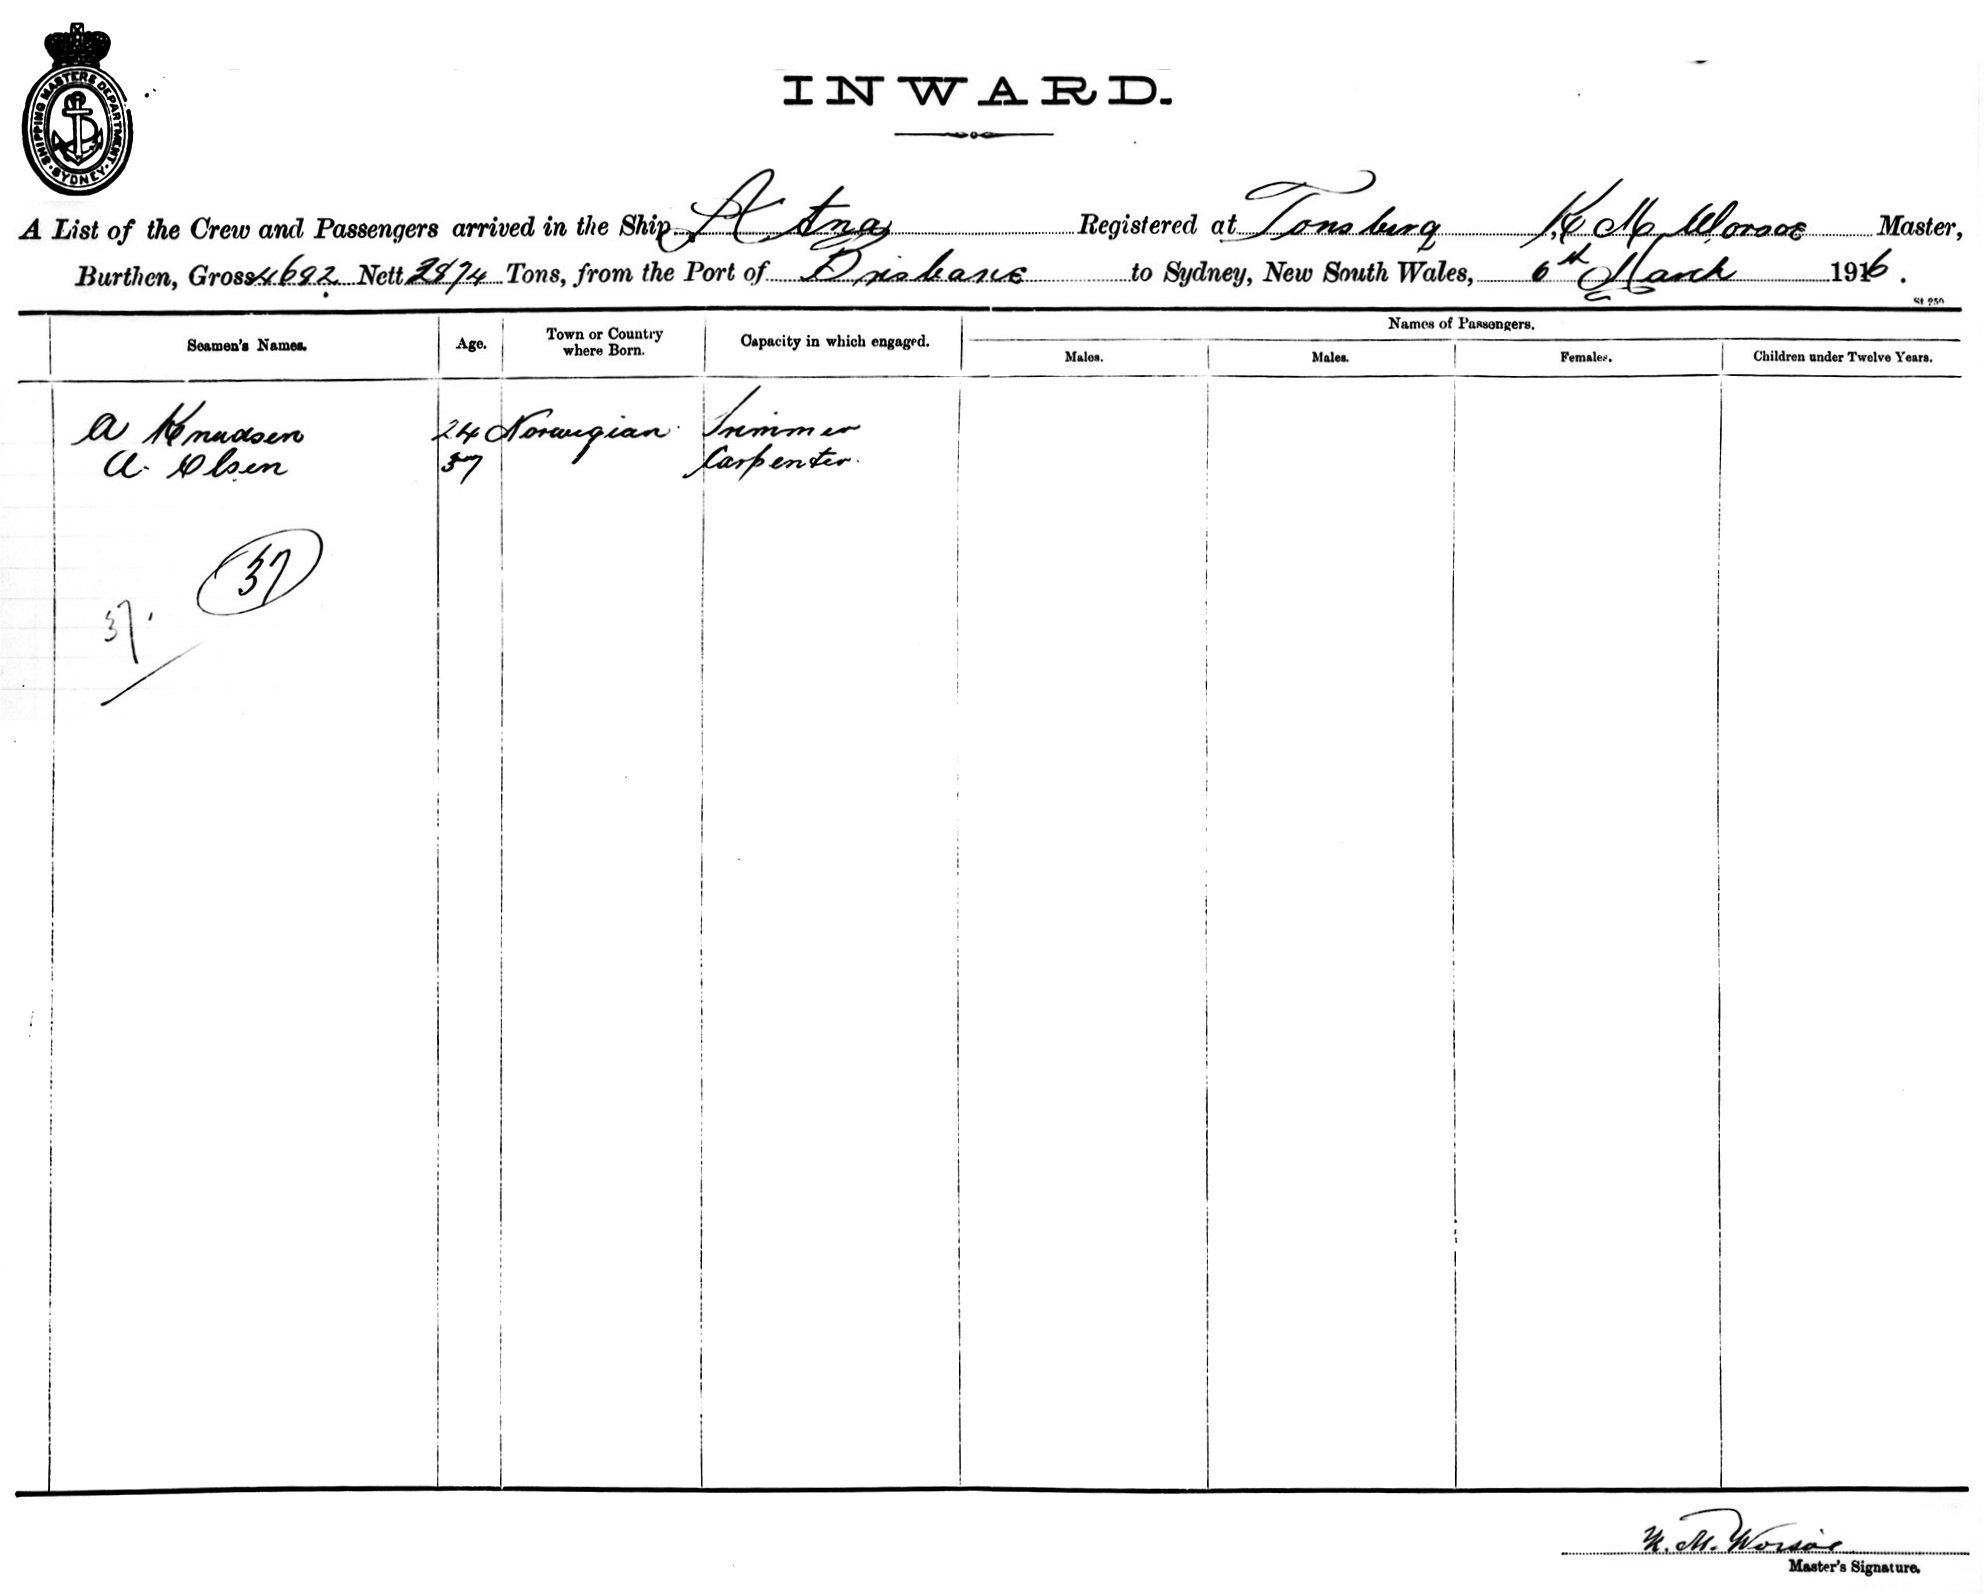 SHIPPING MASTERS DEPARTMENT · SYDNEY ·
INWARD.
A List of the Crew and Passengers arrived in the Ship Atna Registered at Tonsburg K. M. Worsoe Master,
Burthen, Gross 4692 Nett 2874 Tons, from the Port of Brisbane to Sydney, New South Wales, 6th March 1916.
St 250
Names of Passengers.
Seamen's Names. Age. Town or Country where Born. Capacity in which engaged. Males. Males. Females. Children under Twelve Years.
A Knudsen 24 Norwegian Trimmer
A. Olsen 57 Carpenter.
37
37.
K. M. Worsöe
Master's Signature.